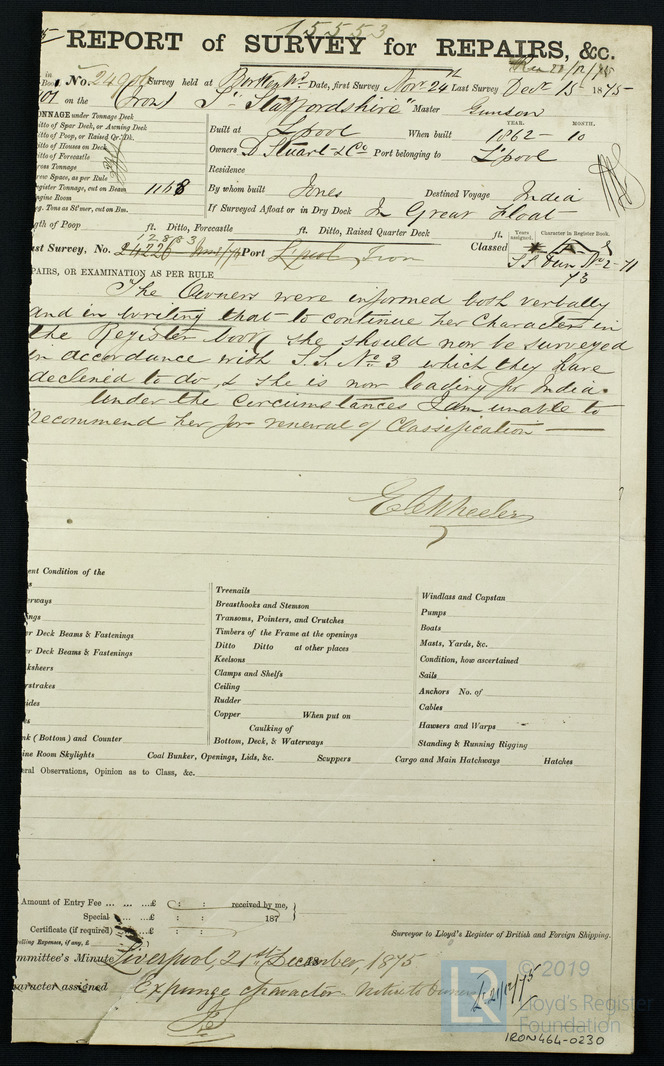 15553
REPORT of SURVEY for REPAIRS, &c.
Rec 20/12/75
in
Book.
No. 24906 Survey held at Date, first Survey Nov. 24th Last Survey Decr. 15 1875
on the (Iron) S "Staffordshire" Master Gunson
TONNAGE under Tonnage Deck
Ditto of Spar Deck, or Awning Deck
Ditto of Poop, or Raised Qr. Dk.
Ditto of Houses on Deck
Ditto of Forecastle
Gross Tonnage
Crew Space, as per Rule
Register Tonnage, cut on Beam 1168
Engine Room
Reg. Tons as St'mer, cut on Bm.
YEAR. MONTH.
Built at L'pool When built 1862 - 10
Owners D. Stuart & Co Port belonging to L'pool
Residence
By whom built Jones Destined Voyage India
If Surveyed Afloat or in Dry Dock In Great Float
ngth of Poop ft. Ditto, Forecastle ft. Ditto, Raised Quarter Deck ft.
Years assigned. Character in Register Book.
12883
st Survey, No. 24226 Port L'pool Iron Classed A
S.S. No 2-71
73
PAIRS, OR EXAMINATION AS PER RULE
The Owners were informed both verbally
and in writing that to continue her Character in
the Register book she should now be surveyed
in accordance with S.S. No. 3 which they have
declined to do, & she is now loading for India.
Under the circumstances I am unable to
recommend her for renewal of Classification
E C Wheeler
ent Condition of the
erways
ings
er Deck Beams & Fastenings
er Deck Beams & Fastenings
ksheers
rstrakes
ides
nk (Bottom) and Counter
Treenails
Breasthooks and Stemson
Transoms, Pointers, and Crutches
Timbers of the Frame at the openings
Ditto Ditto at other places
Keelsons
Clamps and Shelfs
Ceiling
Rudder
Copper When put on
Caulking of
Bottom, Deck, & Waterways
Windlass and Capstan
Pumps
Boats
Masts, Yards, &c.
Condition, how ascertained
Sails
Anchors No. of
Cables
Hawsers and Warps
Standing & Running Rigging
ine Room Skylights Coal Bunker, Openings, Lids, &c. Scuppers Cargo and Main Hatchways Hatches
ral Observations, Opinion as to Class, &c.
Amount of Entry Fee ... ... ...£ : : received by me,
Special ... ... ...£ : : 187
Certificate (if required) ...£ : :
elling Expenses, if any, £
Surveyor to Lloyd's Register of British and Foreign Shipping.
mmittee's Minute Liverpool, 21st December, 1875
aracter assigned Expunge character notice to Owners
21/12/75
© 2019
Lloyd's Register
Foundation
LR
IRON464-0230